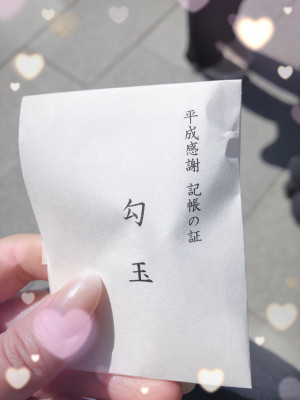 平成感謝 記帳の証
勾玉